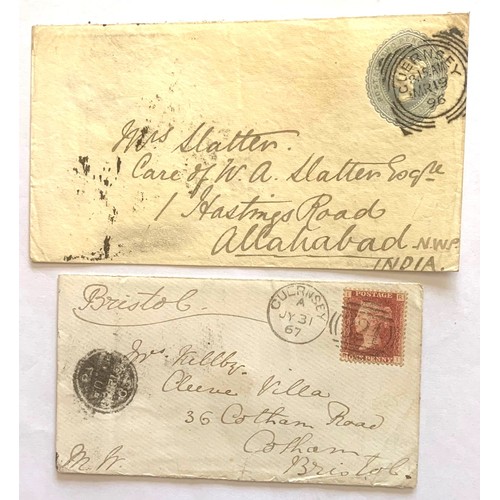 GUERNSEY
8.15 AM
MR 19
96
Mrs Slatter.
Care of W. A. Slatter Esqre
1 Hastings Road
Allahabad N.W.P.
INDIA.
Bristol.
GUERNSEY
A
JY 31
67
POSTAGE
ONE PENNY
Mrs Kellby.
Cleeve Villa
36 Cotham Road
Cotham
Bristol